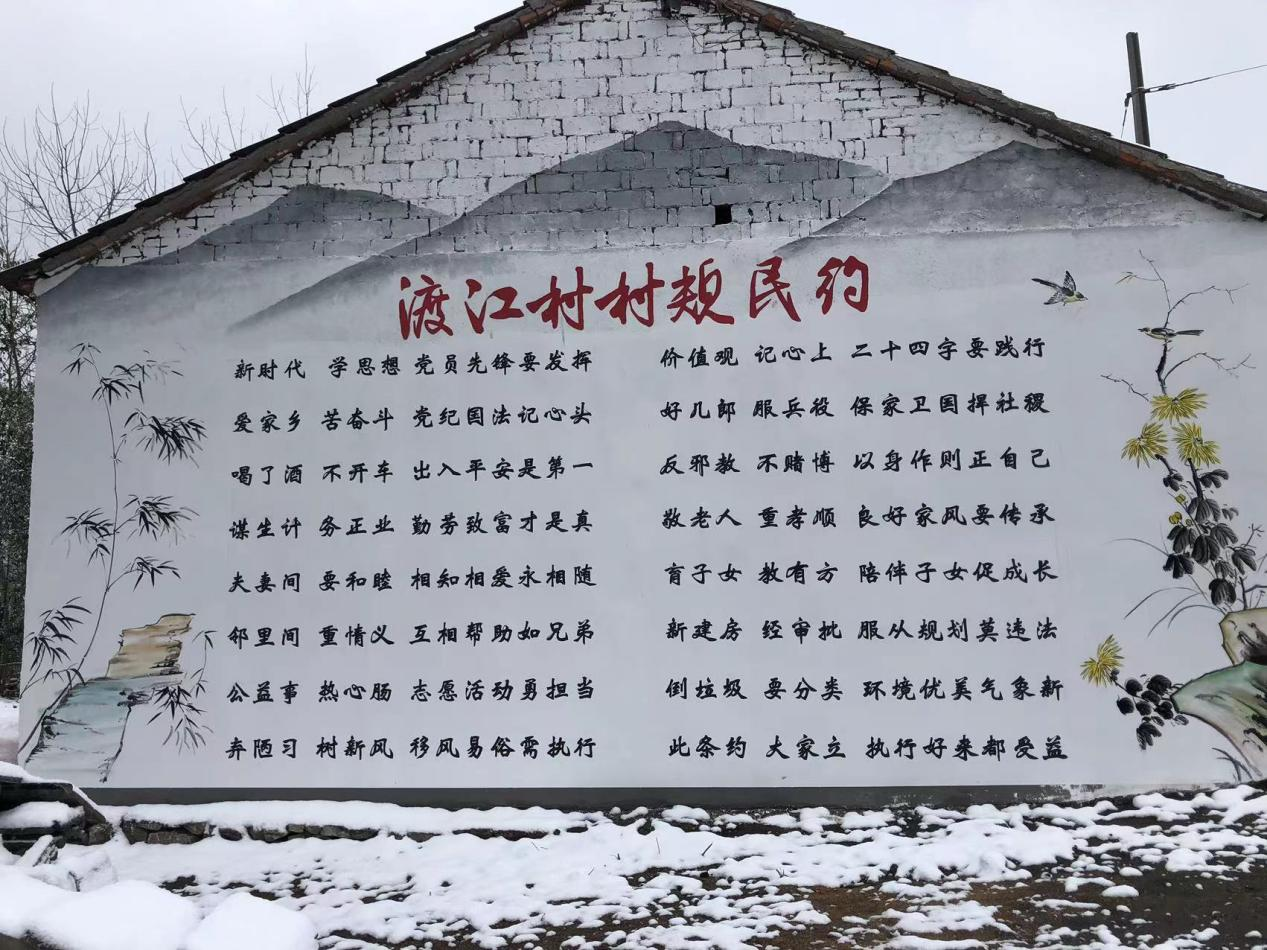 渡江村村规民约
新时代 学思想 党员先锋要发挥
爱家乡 苦奋斗 党纪国法记心头
喝了酒 不开车 出入平安是第一
谋生计 务正业 勤劳致富才是真
夫妻间 要和睦 相知相爱永相随
邻里间 重情义 互相帮助如兄弟
公益事 热心肠 志愿活动勇担当
弃陋习 树新风 移风易俗需执行
价值观 记心上 二十四字要践行
好儿郎 服兵役 保家卫国捍社稷
反邪教 不赌博 以身作则正自己
敬老人 重孝顺 良好家风要传承
育子女 教有方 陪伴子女促成长
新建房 经审批 服从规划莫违法
倒垃圾 要分类 环境优美气象新
此条约 大家立 执行好来都受益